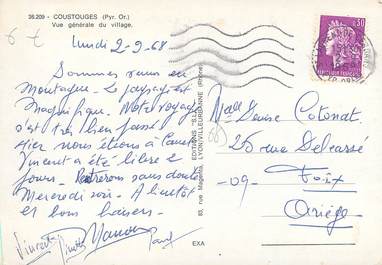 36.209 - COUSTOUGES (Pyr. Or.)
Vue générale du village.
lundi 2-9-68
Sommes venus en
montagne. Le paysage est
magnifique. Notre voyage
s'est très bien passé
Hier nous étions à
Vincent a été libre 2
jours. Rentrerons sans doute
Mercredi soir. A bientôt
et bons baisers.
Vincent
EDITIONS "S.L."
83, rue Magenta, LYON/VILLEURBANNE (Rhône)
EXA
0,30
Melle Cotonat
25 rue Delcassé
-09- Foix
Ariège